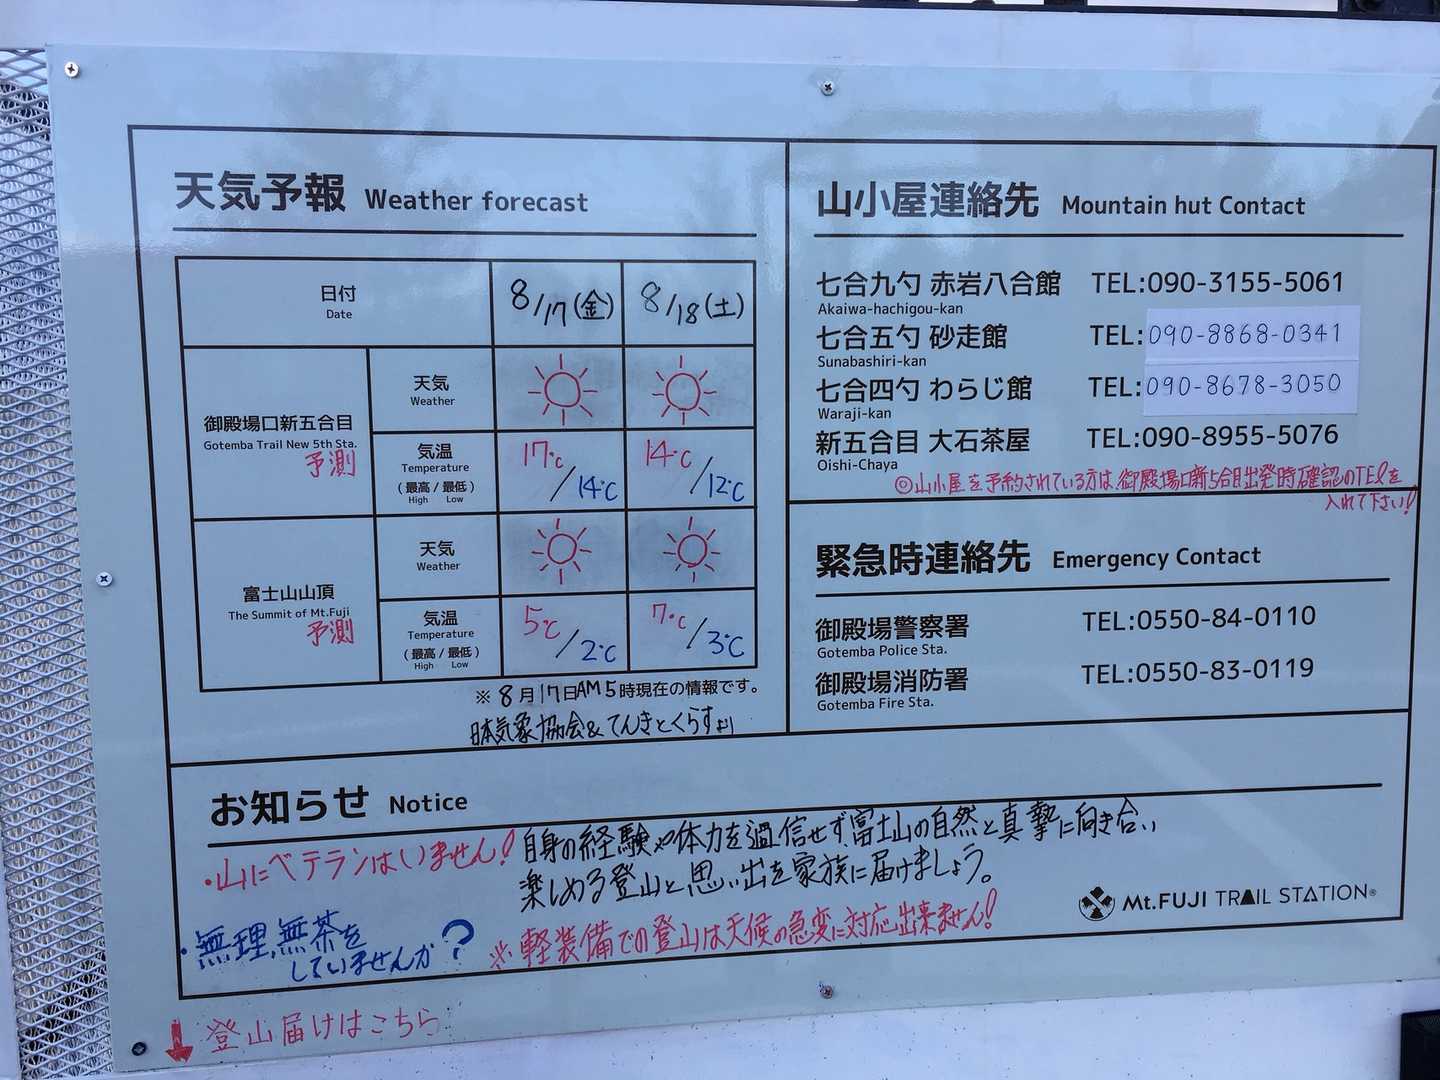 天気予報 Weather forecast
日付 8/17(金) 8/18(土)
Date
御殿場口新五合目
Gotemba Trail New 5th Sta.
予測
天気
Weather
気温 17℃/14℃ 14℃/12℃
Temperature
(最高/最低)
High Low
富士山山頂
The Summit of Mt.Fuji
予測
天気
Weather
気温 5℃/2℃ 7℃/3℃
Temperature
(最高/最低)
High Low
※ 8月17日AM5時現在の情報です。
日本気象協会&てんきとくらすより
山小屋連絡先 Mountain hut Contact
七合九勺 赤岩八合館 TEL:090-3155-5061
Akaiwa-hachigou-kan
七合五勺 砂走館 TEL:090-8868-0341
Sunabashiri-kan
七合四勺 わらじ館 TEL:090-8678-3050
Waraji-kan
新五合目 大石茶屋 TEL:090-8955-5076
Oishi-Chaya
◎山小屋を予約されている方は、御殿場口新5合目出発時確認のTELを
入れて下さい!
緊急時連絡先 Emergency Contact
御殿場警察署 TEL:0550-84-0110
Gotemba Police Sta.
御殿場消防署 TEL:0550-83-0119
Gotemba Fire Sta.
お知らせ Notice
・山にベテランはいません! 自身の経験や体力を過信せず、富士山の自然と真摯に向き合い
楽しめる登山と思い出を家族に届けましょう。
・無理、無茶を
していませんか?
※軽装備での登山は天候の急変に対応出来ません!
Mt.FUJI TRAIL STATION®
↓登山届けはこちら